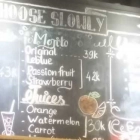 CHOOSE SLOWLY
Mojito
Original 39k
Leblue
Passion fruit 42k
Strawberry
Juices
Orange
Watermelon 30k
Carrot